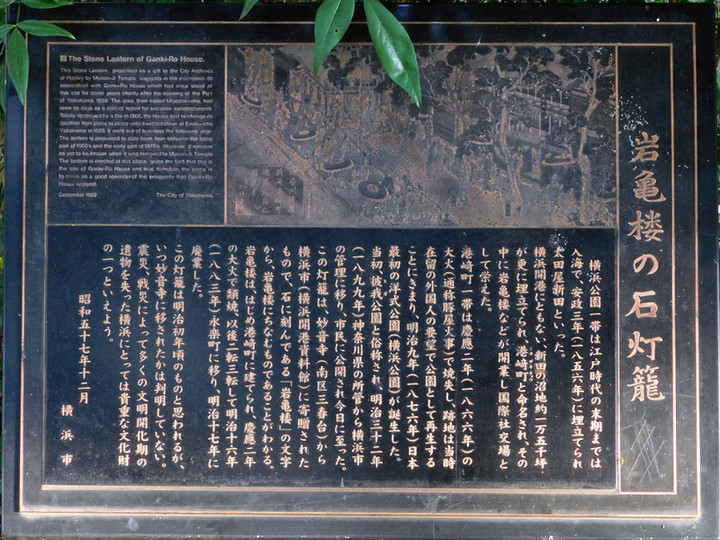 The Stone Lantern of Ganki-Rō House.
This Stone Lantern, presented as a gift to the City Archives
of History by Myōon-Ji Temple, suggests in the inscription its
association with Ganki-Rō House which had once stood at
this site for some years shortly after the opening of the Port
of Yokohama 1859. The area, then called Miyozaki-cho, had
seen its days as a district noted for exquisite establishments.
Totally destroyed by a fire in 1866, the House had to change its
location from place to place until it settled down at Eiraku-cho,
Yokohama in 1883. It went out of business the following year.
The lantern is presumed to date from between the latter
part of 1860's and the early part of 1870's. However, it remains
as yet to be known when it was removed to Myōon-Ji Temple.
The lantern is erected at this place, given the fact that this is
the site of Ganki-Rō House and that therefore the place is
to serve as a good reminder of the prosperity that Ganki-Rō
House enjoyed.
December 1982 The City of Yokohama
岩亀楼の石灯籠
横浜公園一帯は江戸時代の末期までは
入海で、安政三年(一八五六年)に埋立てられ
太田屋新田といった。
横浜開港にともない、新田の沼地約一万五千坪
が更に埋立てられ、港崎町と命名され、その
中に岩亀楼などが開業し国際社交場と
して栄えた。
港崎町一帯は慶應二年(一八六六年)の
大火(通称豚屋火事)で焼失し、跡地は当時
在留の外国人の要望で公園として再生する
ことにきまり、明治九年(一八七六年)日本
最初の洋式公園(横浜公園)が誕生した。
当初「彼我公園」と俗称され、明治三十二年
(一八九九年)神奈川県の所管から横浜市
の管理に移り、市民に公開され今日に至った。
この灯籠は、妙音寺(南区三春台)から
横浜市(横浜開港資料館)に寄贈された
もので、石に刻んである「岩亀楼」の文字
から、岩亀楼にちなむものであることがわかる。
岩亀楼は、はじめ港崎町に建てられ、慶應二年
の大火で類焼、以後二転三転して明治十六年
(一八八三年)永楽町に移り、明治十七年に
廃業した。
この灯籠は明治初年頃のものと思われるが、
いつ妙音寺に移されたかは判明していない。
震災、戦災によって多くの文明開化期の
遺物を失った横浜にとっては貴重な文化財
の一つといえよう。
昭和五十七年十二月
横浜市